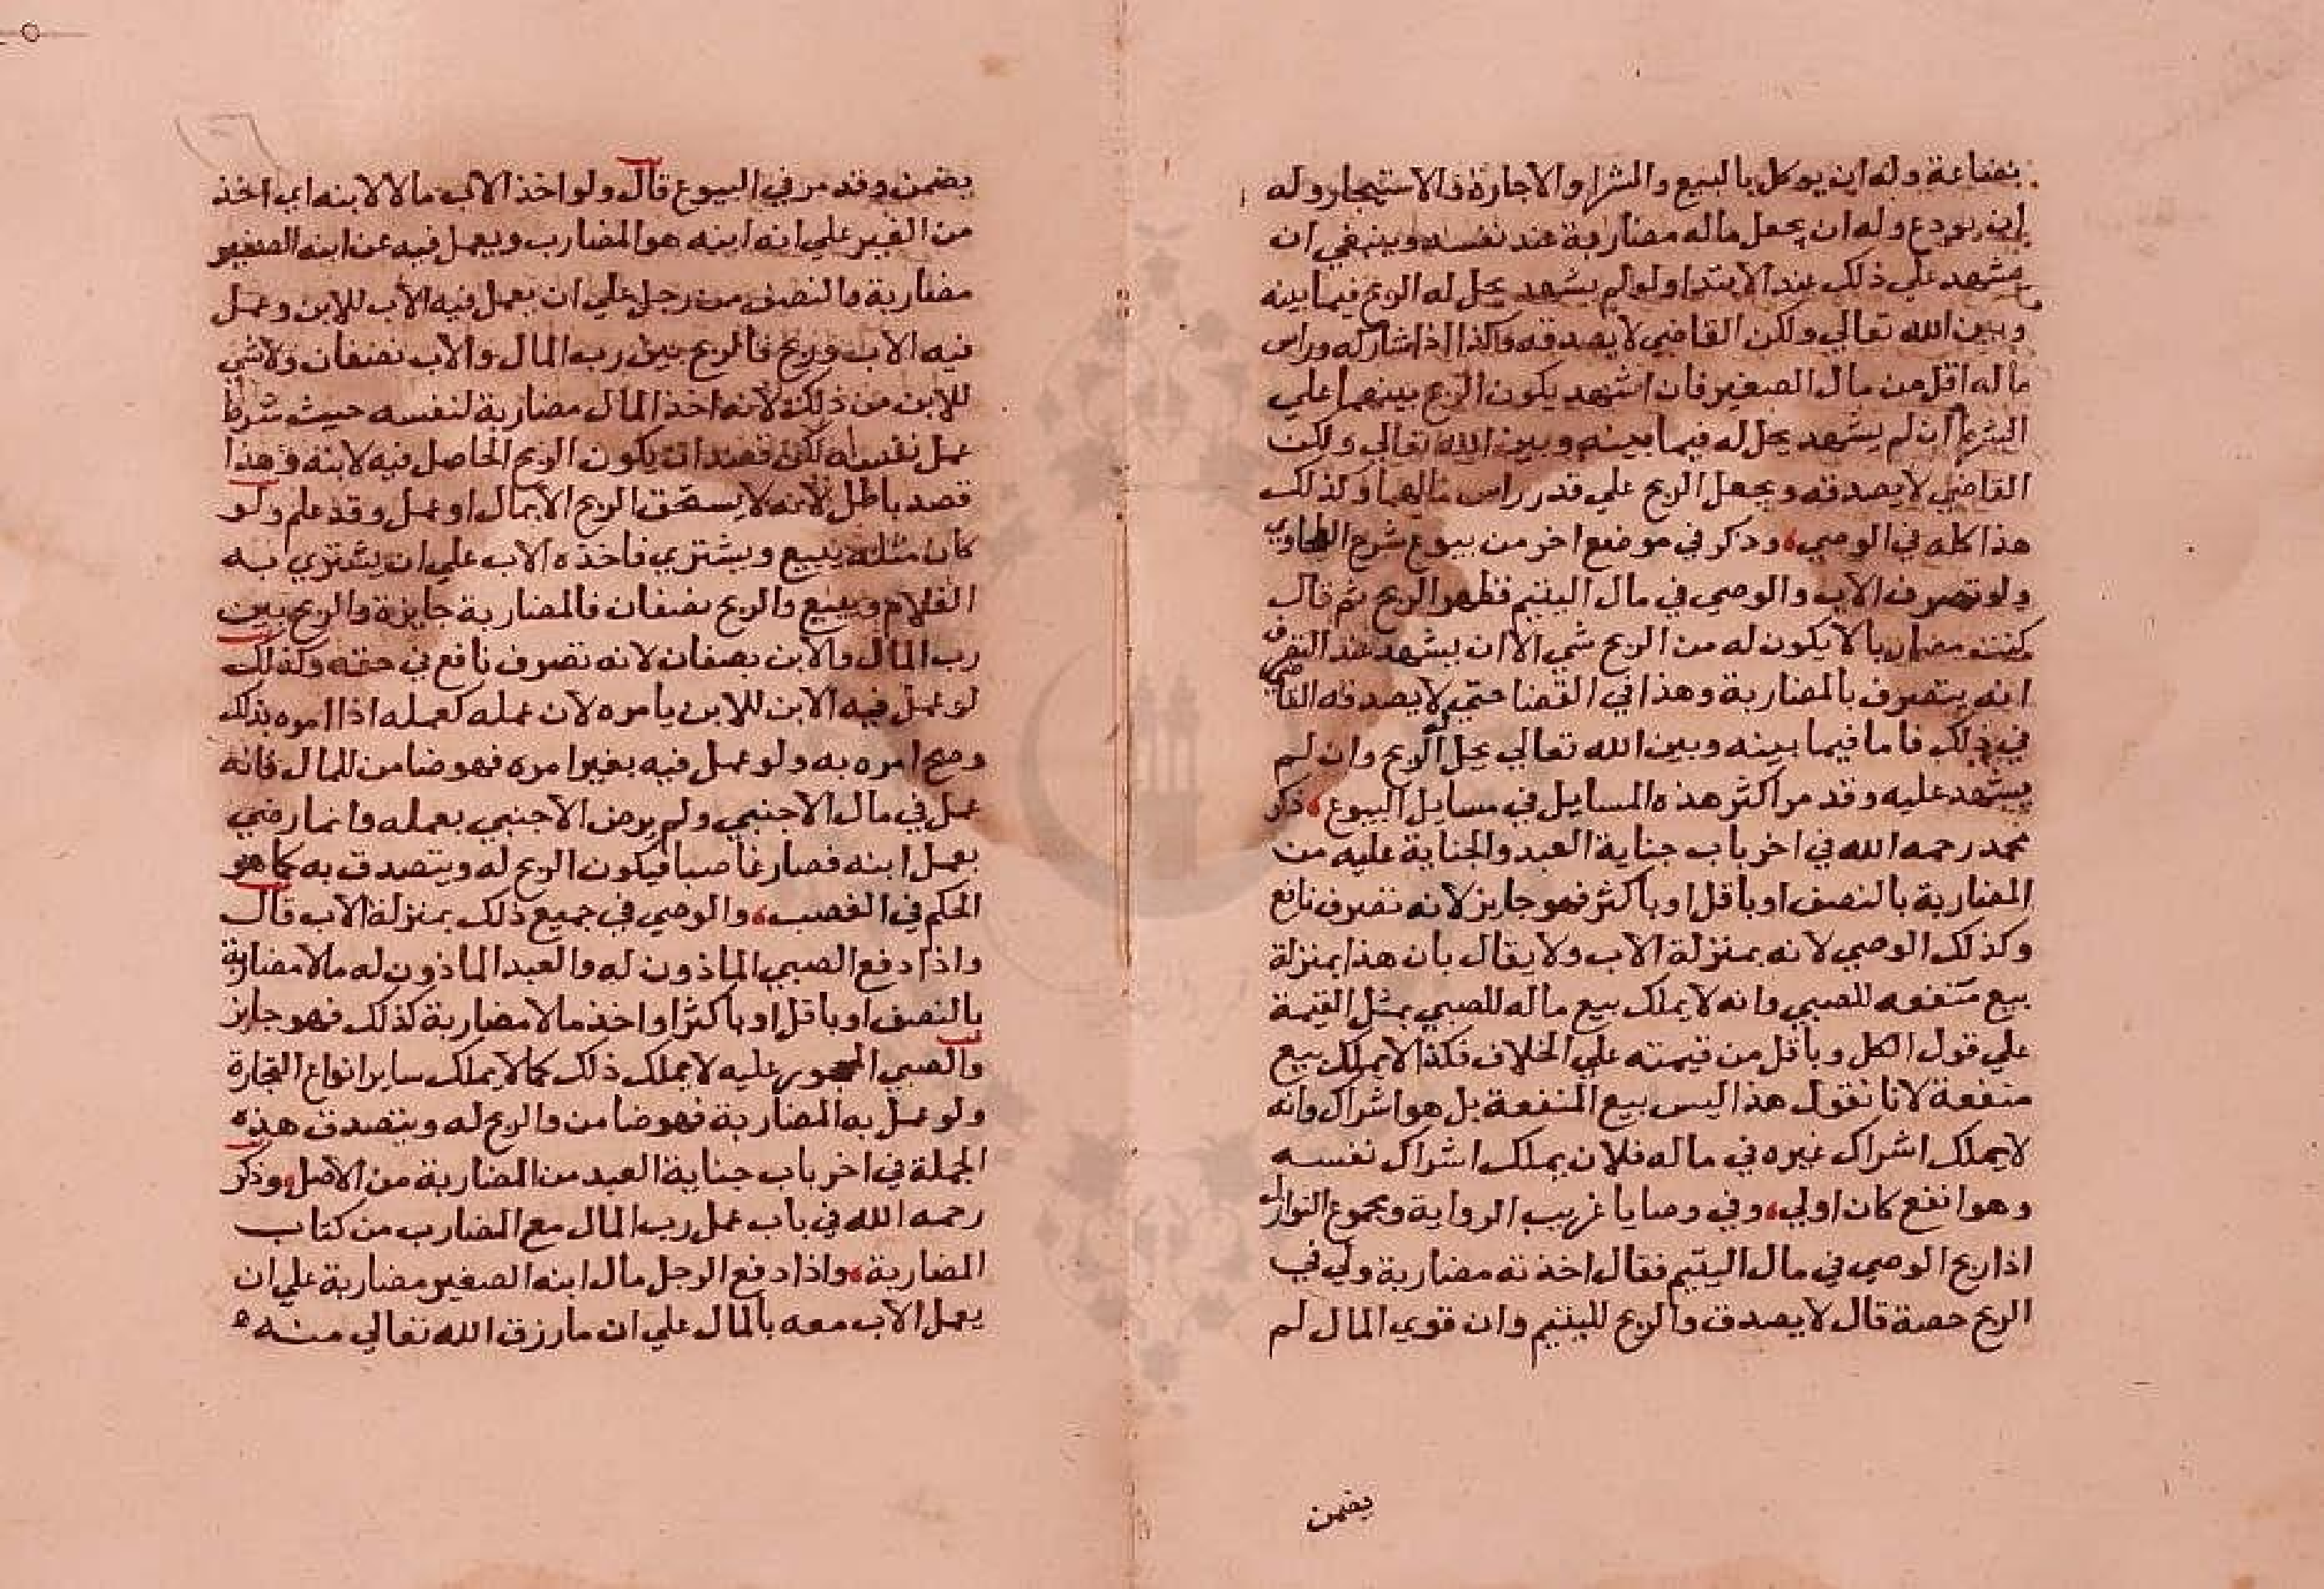 بضاعة وله ان يوكل بالبيع والشرا والاجارة والاستيجار وله
ان يودع وله ان يجعل ماله مضاربة عند نفسه وينبغي ان
يشهد علي ذلك عند الابتدا ولو لم يشهد يحل له الربح فيما بينه
وبين الله تعالي ولكن القاضي لا يصدقه وكذا اذا شاركه وراس
ماله اقل من مال الصغير فان اشهد يكون الربح بينهما علي
الشرط ان لم يشهد يحل له فيما بينه وبين الله تعالي ولكن
القاضي لا يصدقه ويجعل الربح علي قدر راس مالهما وكذلك
هذا كله في الوصي وذكر في موضع اخر من بيوع شرح الطحاوي
ولو تصرف الاب والوصي في مال اليتيم فظهر الربح ثم قال
كنت مضاربا لا يكون له من الربح شي الا ان يشهد عند التصرف
انه يتصرف بالمضاربة وهذا في القضا حتي لا يصدقه القاضي
في ذلك فاما فيما بينه وبين الله تعالي يحل له الربح وان لم
يشهد عليه وقد مر اكثر هذه المسايل في مسايل البيوع ذكر
محمد رحمه الله في اخر باب جناية العبد والجناية عليه من
المضاربة بالنصف او باقل او باكثر فهو جايز لانه تصرف نافع
وكذلك الوصي لانه بمنزلة الاب ولا يقال بان هذا بمنزلة
بيع منفعه للصبي وانه لا يملك بيع ماله للصبي بمثل القيمة
علي قول الكل وباقل من قيمته علي الخلاف فكذا لا يملك بيع
منفعة لانا نقول هذا ليس بيع المنفعة بل هو اشراك وانه
لا يملك اشراك غيره في ماله فلان يملك اشراك نفسه
وهو انفع كان اولي وفي وصايا غريب الرواية ومجموع النوازل
اذا ربح الوصي في مال اليتيم فقال اخذته مضاربة ولي في
الربح حصة قال لا يصدق والربح لليتيم وان قوي المال لم
يضمن
يضمن وقد مر في البيوع قال ولو اخذ الاب مالا لابنه اي اخذ
من الغير علي انه ابنه هو المضارب ويعمل فيه عن ابنه الصغير
مضاربة بالنصف من رجل علي ان يعمل فيه الاب للابن وعمل
فيه الاب وربح فالربح بين رب المال والاب نصفان ولا شي
للابن من ذلك لانه اخذ المال مضاربة لنفسه حيث شرط
عمل نفسه لكن قصد ان يكون الربح الحاصل فيه لابنه وهذا
قصد باطل لانه لا يستحق الربح الا بمال او عمل وقد علم ولو
كان مثله يبيع ويشتري فاخذه الاب علي ان يشتري به
الغلام ويبيع والربح نصفان فالمضاربة جايزة والربح بين
رب المال والابن نصفان لانه تصرف نافع في حقه وكذلك
لو عمل فيه الابن للابن يامره لان عمله كعمله اذا امره بذلك
وصح امره به ولو عمل فيه بغير امره فهو ضامن للمال فانه
عمل في مال الاجنبي ولم يرض الاجنبي بعمله وانما رضي
بعمل ابنه فصار غاصبا فيكون الربح له ويتصدق به كما هو
الحكم في الغصب والوصي في جميع ذلك بمنزلة الاب قال
واذا دفع الصبي الماذون له والعبد الماذون له مالا مضاربة
بالنصف او باقل او باكثر او اخذ مالا مضاربة كذلك فهو جايز
والصبي المحجور عليه لا يملك ذلك كما لا يملك ساير انواع التجارة
ولو عمل به المضاربة فهو ضامن والربح له ويتصدق هذه
الجملة في اخر باب جناية العبد من المضاربة من الاصل وذكر
رحمه الله في باب عمل رب المال مع المضارب من كتاب
المضاربة واذا دفع الرجل مال ابنه الصغير مضاربة علي ان
يعمل الاب معه بالمال علي ان ما رزق الله تعالي منه